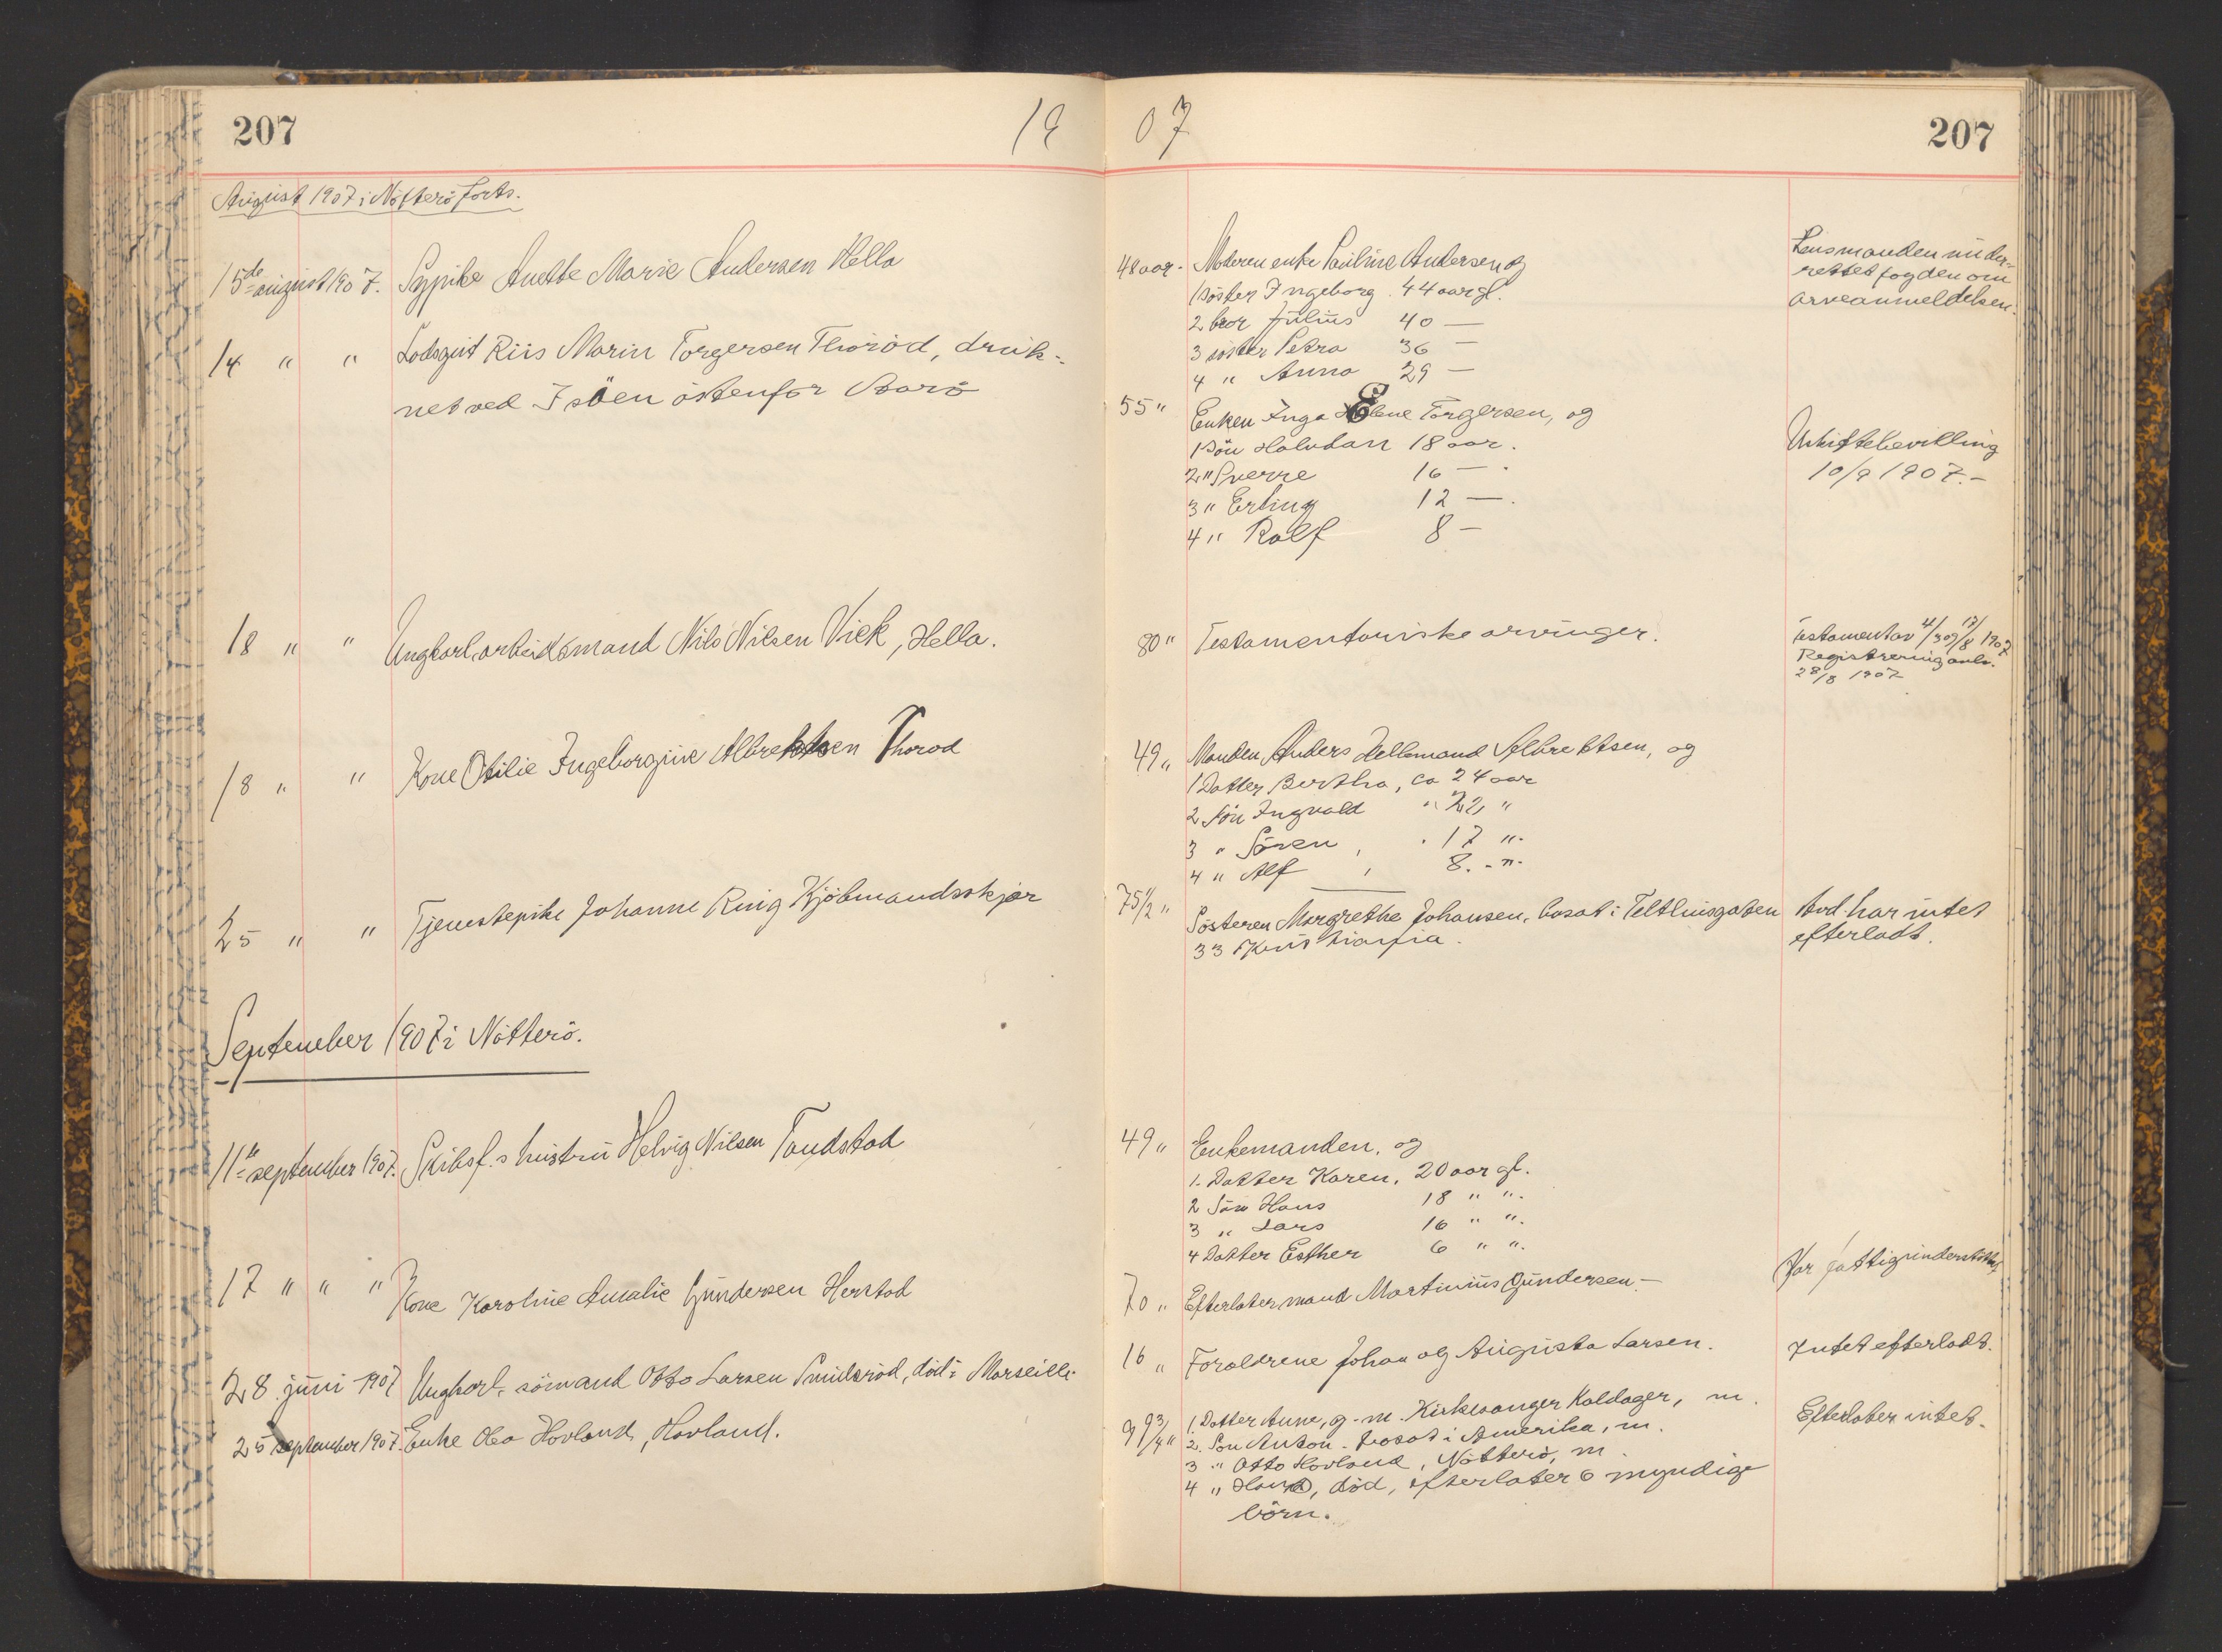 207
19
07
207
August 1907 i Nötterö forts.
15de august 1907. Sypike Anette Marie Andersen Hella
48 aar. Moderen enke Pauline Andersen og
1 söster Ingeborg. 44 aar gl.
2 bror Julius 40 —
3 söster Petra 36 —
4 " Anna 29 —
Lensmanden under-
rettet fogden om
arveanmeldelsen.
14 " " Lodsgut Riis Marin Torgersen Thoröd, druk-
net ved Isöen östenfor Barö
55 " Enken Inga Elene Torgersen, og
1 Sön Halvdan 18 aar.
2 " Sverre 16 —.
3 " Erling 12 —.
4 " Rolf 8 —
Uskiftebevilling
10/9 1907.-
18 " " Ungkarl, arbeidsmand Nils Nilsen Viek, Hella.
80 " Testamentariske arvinger.
Testamentar 4/3 og 17/8 1907
Registrering avh.
28/8 1907
18 " " Kone Otilie Ingeborgine Albrektsen Thorod
49 " Manden Anders Hellemand Albrektsen, og
1 Datter Bertha, ca 24 aar
2 Sön Ingvald " 22, "
3 " Sören, " 17 ".
4 " Alf, 8. - ".
25 " " Tjenestepike Johanne Ring Kjöbmandsskjær
75 1/2 " Sösteren Margrethe Johansen, bosat i Telthusgaten
33 Kristiania.
Avd. har intet
efterladt.
September 1907 i Nötterö.
11te september 1907. Skibsf.s hustru Helvig Nilsen Tandstad
49 " Enkemanden, og
1. Datter Karen, 20 aar gl.
2 Sön Hans 18 " ".
3 " Lars 16 " ".
4 Datter Esther 6 " ".
17 " " " Kone Karoline Amalie Gundersen Herstad
70 " Efterlater mand Martinius Gundersen.-
Har fattigunderstöttelse
28 juni 1907 Ungkarl, sömand Otto Larsen Smidsröd, död i Marseille.
16 " Forældrene Johan og Augusta Larsen.
Intet efterladt.
25 september 1907. Enke Olea Hovland, Hovland.
99 3/4 " 1. Datter Anne, g. m. Kirkesanger Kaldager, m.
2. Sön Anton - bosat i Amerika, m.
3 " Otto Hovland, Nötterö, m.
4 " Hans, död, efterlater 6 myndige
börn.
Efterlater intet.